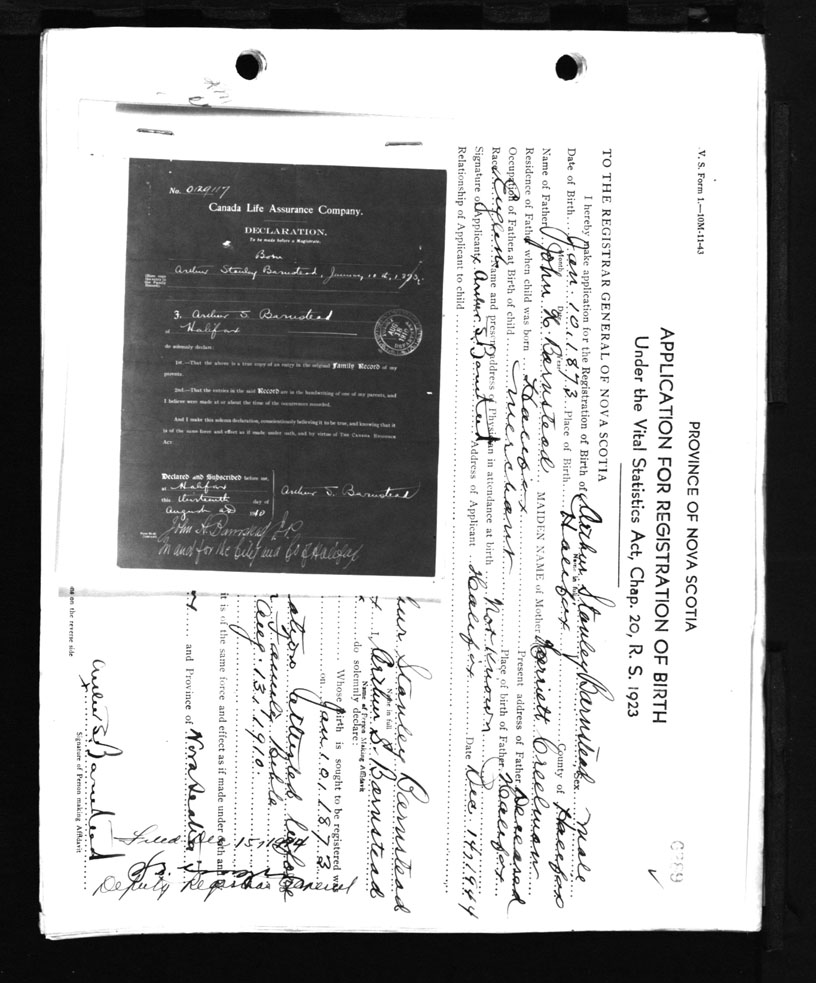 V. S. Form 1.—10M-11-43
PROVINCE OF NOVA SCOTIA
APPLICATION FOR REGISTRATION OF BIRTH
Under the Vital Statistics Act, Chap. 20, R. S. 1923
TO THE REGISTRAR GENERAL OF NOVA SCOTIA
I hereby make application for the Registration of Birth of Arthur Stanley Barnstead Sex male
Name in full
Date of Birth Jan. 10. 1873 Place of Birth Halifax County of Halifax
Month Day
Name of Father John H Barnstead MAIDEN NAME of Mother Harriett Creelman
Residence of Father when child was born Halifax Present address of Father Deceased
Occupation of Father at Birth of child merchant Place of birth of Father Halifax
Race English Name and present address of Physician in attendance at birth Not Known
Signature of Applicant x Arthur S Barnstead Address of Applicant Halifax Date Dec 14, 1944
Relationship of Applicant to child
No. 0129117
Canada Life Assurance Company.
DECLARATION.
To be made before a Magistrate.
Born
Arthur Stanley Barnstead, January 10th, 1873.
I, Arthur S Barnstead
of Halifax
do solemnly declare:
1st.—That the above is a true copy of an entry in the original Family Record of my
parents.
2nd.—That the entries in the said Record are in the handwriting of one of my parents, and
I believe were made at or about the time of the occurrences recorded.
And I make this solemn declaration, conscientiously believing it to be true, and knowing that it
is of the same force and effect as if made under oath, and by virtue of The Canada Evidence
Act.
Declared and Subscribed before me,
at Halifax
this thirteenth day of
August AD 1910
Arthur S. Barnstead
John H Barnstead J.P.
in and for the City and Co of Halifax
hur Stanley Barnstead
Name in full
I, Arthur S Barnstead
Name of Person Making Affidavit
do solemnly declare:
Whose birth is sought to be registered w
on Jan. 10. 1873
ation attested before
Family Bible
Aug. 13. 1910.
it is of the same force and effect as if made under oath and
and Province of Nova Scotia
Arthur S Barnstead
Signature of Person making Affidavit
ns on the reverse side
Filed Dec 15 1944
Deputy Registrar General